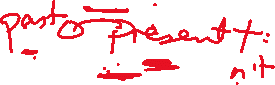 past present t.
n't